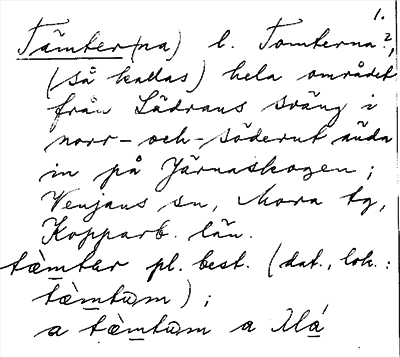 1.
Tämter(na) l. Tomterna?,
(så kallas) hela området
från Lädrans sväng i
norr- och- söderut ända
in på Järnaskogen;
Venjans sn, Mora tg,
Kopparb. län.
tæ̀mtar pl. best. (dat., lok.:
tæ̀mtum);
a tæ̀mtum a Má